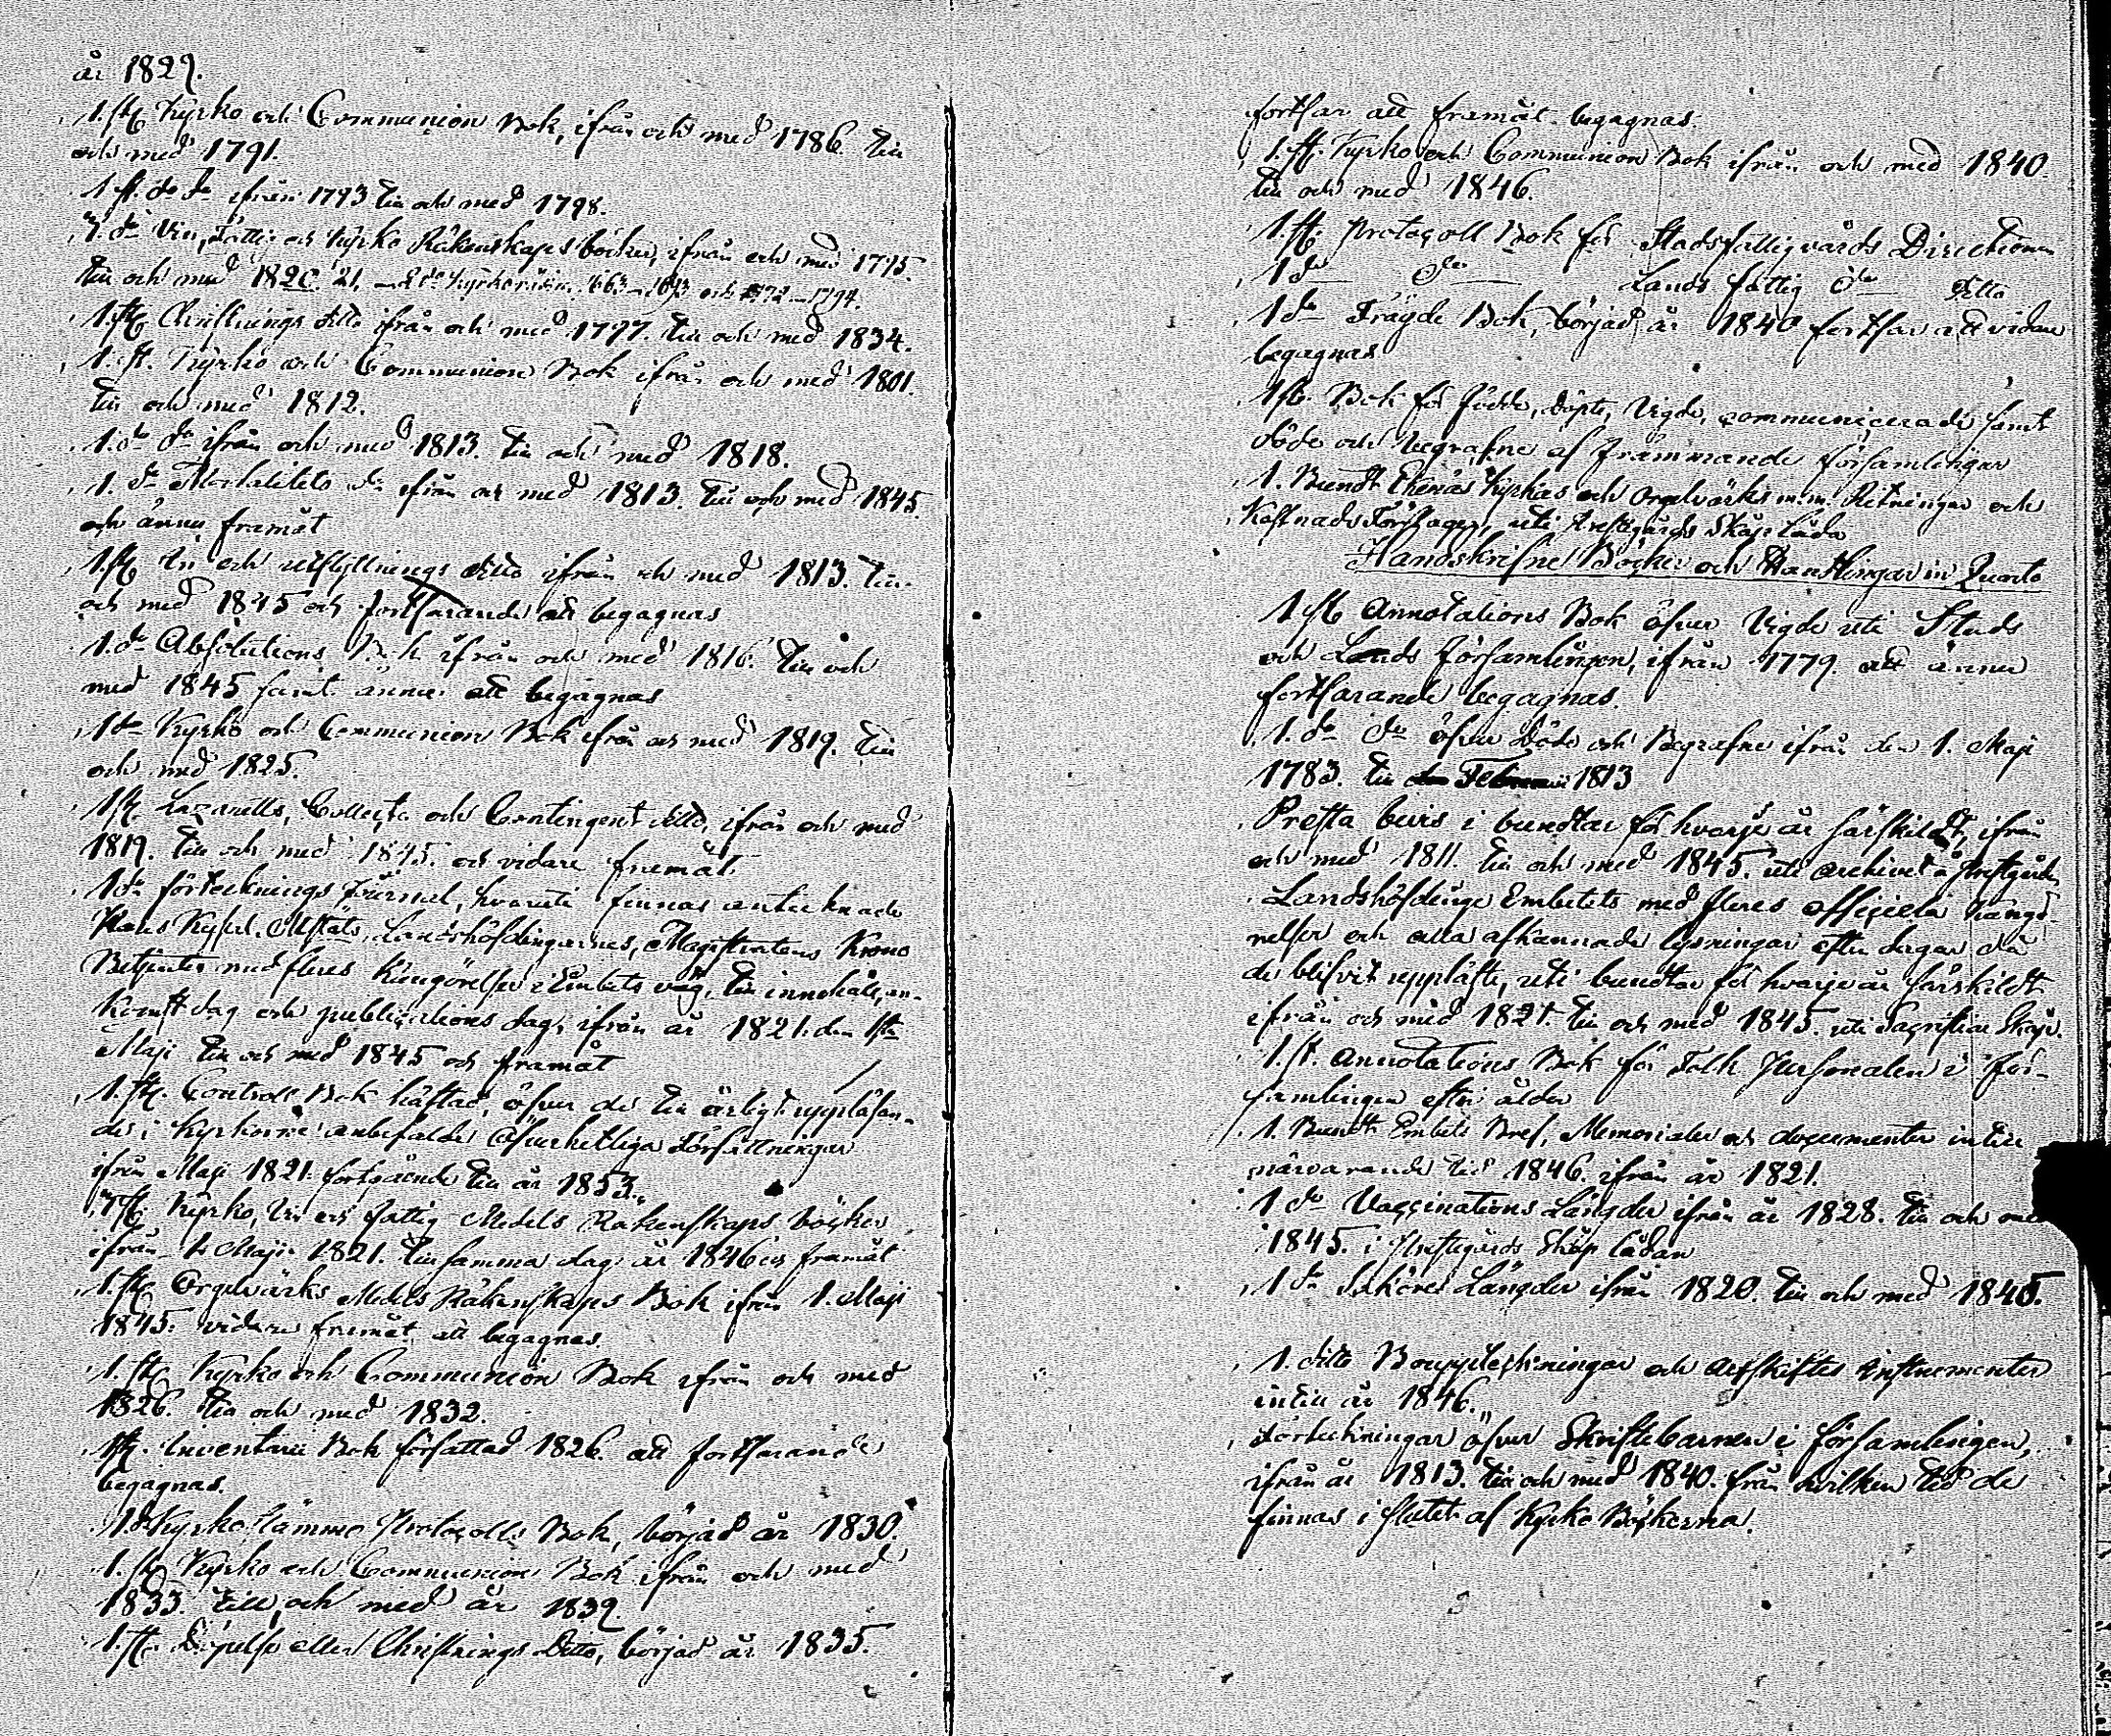 år 1829.
1. st. Kyrko och Communion Bok, ifrån och med 1786. till
och med 1791.
1 st. do do ifrån 1793 till och med 1798.
7. do Vin, Fattig och Kyrko Räkenskaps böcker, ifrån och med 1795.
till och med 1820. 21. 1663 1693 och 1772 — 1794.
1. st. Christnings ditto ifrån och med 1797. till och med 1834.
1. st. Kyrko och Communion Bok ifrån och med 1801.
till och med 1812.
1. do do ifrån och med 1813. till och med 1818.
1. do Mortalitets do ifrån och med 1813. till och med 1845.
och ännu framåt
1 st In och utflyttnings ditto ifrån och med 1813. till
och med 1845 och fortfarande att begagnas
1. do Absolutions Bok ifrån och med 1816. till och
med 1845 samt ännu att begagnas
1 do Kyrko och Communion Bok ifrån och med 1819. till
och med 1825.
1 st. Lazaretts, Collect och Contingent ditto, ifrån och med
1819. till och med 1845. och vidare framåt
1 do förtecknings Journal, hvaruti finnas antecknade
Hans Kejserl. Landshöfdingarnes, Magistratens Krono
Betjenter med fleres Kungörelser i Embets väg, till innehåll, an-
komst dag och publications dag, ifrån år 1821. den 1sta
Maji till och med 1845 och framåt
1. st. Controll Bok häftad, öfver de till årligt uppläsan-
de i Kyrkorne anbefalde Öfverhetliga Författningar
ifrån Maji 1821. fortgående till år 1853.
7 st. Kyrko, Vin och Fattig Medels Räkenskaps böcker
ifrån 1. Maji 1821. till samma dag år 1846 och framåt
1. st. Orgelvärks Medels Räkenskaps Bok ifrån 1. Maji
1845. vidare framåt att begagnas.
1. st. Kyrko och Communion Bok ifrån och med
1826. till och med 1832.
1 st. Inventarii Bok författad 1826. att fortfarande
begagnas.
1 do Kyrko Stämmo Protocolls Bok, börjad år 1830.
1. st. Kyrko och Communion Bok ifrån och med
1833. till och med år 1839.
1. st. Döpelse eller Christnings Ditto, börjad år 1835.
fortfar att framåt begagnas.
1. st. Kyrko och Communion Bok ifrån och med 1840.
till och med 1846.
1. st. Protocoll Bok för Stads fattigvårds Directionen
1 do — do — Lands fattig do Ditto
1 do Bok, börjad år 1840 fortfar att vidare
begagnas
1 st. Bok för födde, döpte, Vigde, communicerade samt
döde och begrafne af främmande församlingar
1. Bundt Ekenäs Kyrkas och Orgelvärks m.m. Ritningar och
Kostnads Förslager, uti Prestgårds Skåp låda
Handskrifne Böcker och Handlingar in Quarto
1 st. Annotations Bok öfver Vigde uti Stads
och Lands församlingen, ifrån 1779. att ännu
fortfarande begagnas.
1. do do öfver Döde och Begrafne ifrån den 1. Maji
1783. till 1813
Presta bevis i bundtar för hvarje år särskildt, ifrån
och med 1811. till och med 1845. uti archivet å Prestgården
Landshöfdinge Embetets med fleres officiela kungö-
relser och alla afkannade lysningar efter dagar då
de blifvit uppläste, uti bundtar för hvarje år särskildt
ifrån och med 1821. till och med 1845. uti Sacristiae Skåp.
1. st. Annotations Bok för Folk Personalen i För-
samlingen efter ålder
1. Bundt Embets Bref, Memorialer och documenter intill
närvarande tid 1846. ifrån år 1821.
1 do Vaccinations Längder ifrån år 1828. till och med
1845. i Prestegårds Skåp lådan
1 do Längder ifrån 1820. till och med 1845.
1. ditto Boupptekningar och Arfskiftes instrumenter
intill år 1846.
Förteckningar öfver Skriftebarnen i församlingen,
ifrån år 1813. till och med 1840. från hvilken tid de
finnas i slutet af Kyrko Böckerna.